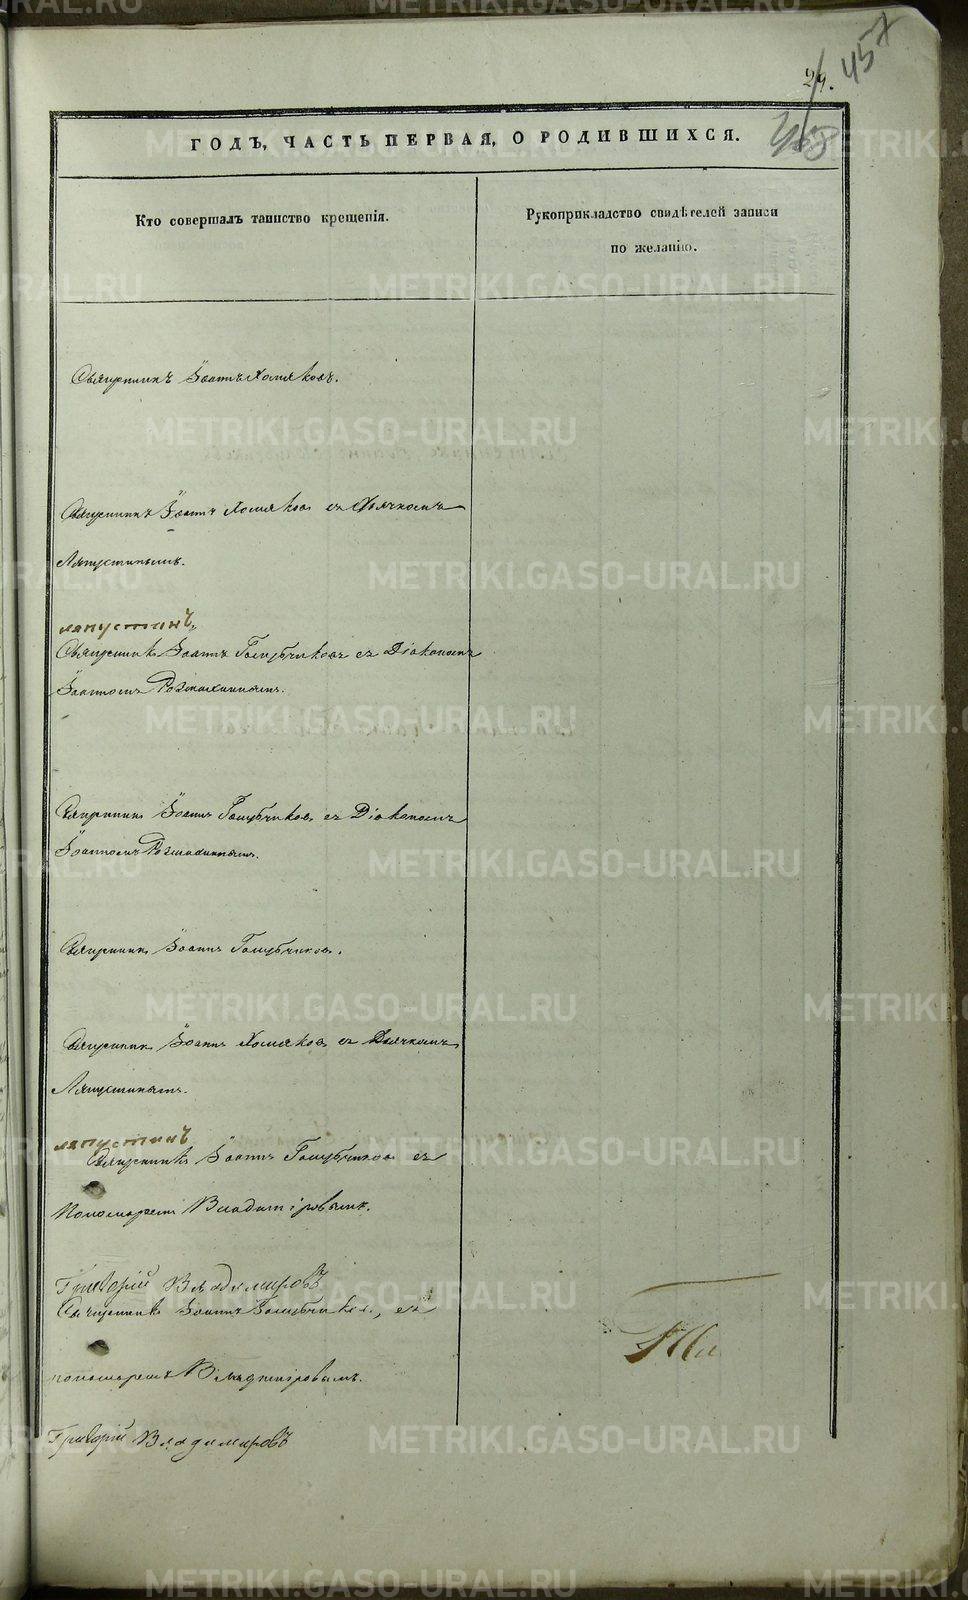 24.
457
ГОДЪ, ЧАСТЬ ПЕРВАЯ, О РОДИВШИХСЯ.
Кто совершалъ таинство крещенія.
Рукоприкладство свидѣтелей записи
по желанію.
Священникъ Іоаннъ Хомяковъ.
Священникъ Іоаннъ Хомяковъ съ Дьячкомъ
Ляпустинымъ.
ляпустинъ
Священникъ Іоаннъ Голубчиковъ съ Діакономъ
Іоанномъ
Священникъ Іоаннъ Голубчиковъ съ Діакономъ
Іоанномъ
Священникъ Іоаннъ Голубчиковъ.
Священникъ Іоаннъ Хомяковъ съ Дьячкомъ
Ляпустинымъ.
ляпустинъ
Священникъ Іоаннъ Голубчиковъ съ
Пономаремъ Владиміровымъ.
Григорій Владимировъ
Священникъ Іоаннъ Голубчиковъ, съ
пономаремъ Владиміровымъ.
Григорій Владимировъ
METRIKI.GASO-URAL.RU